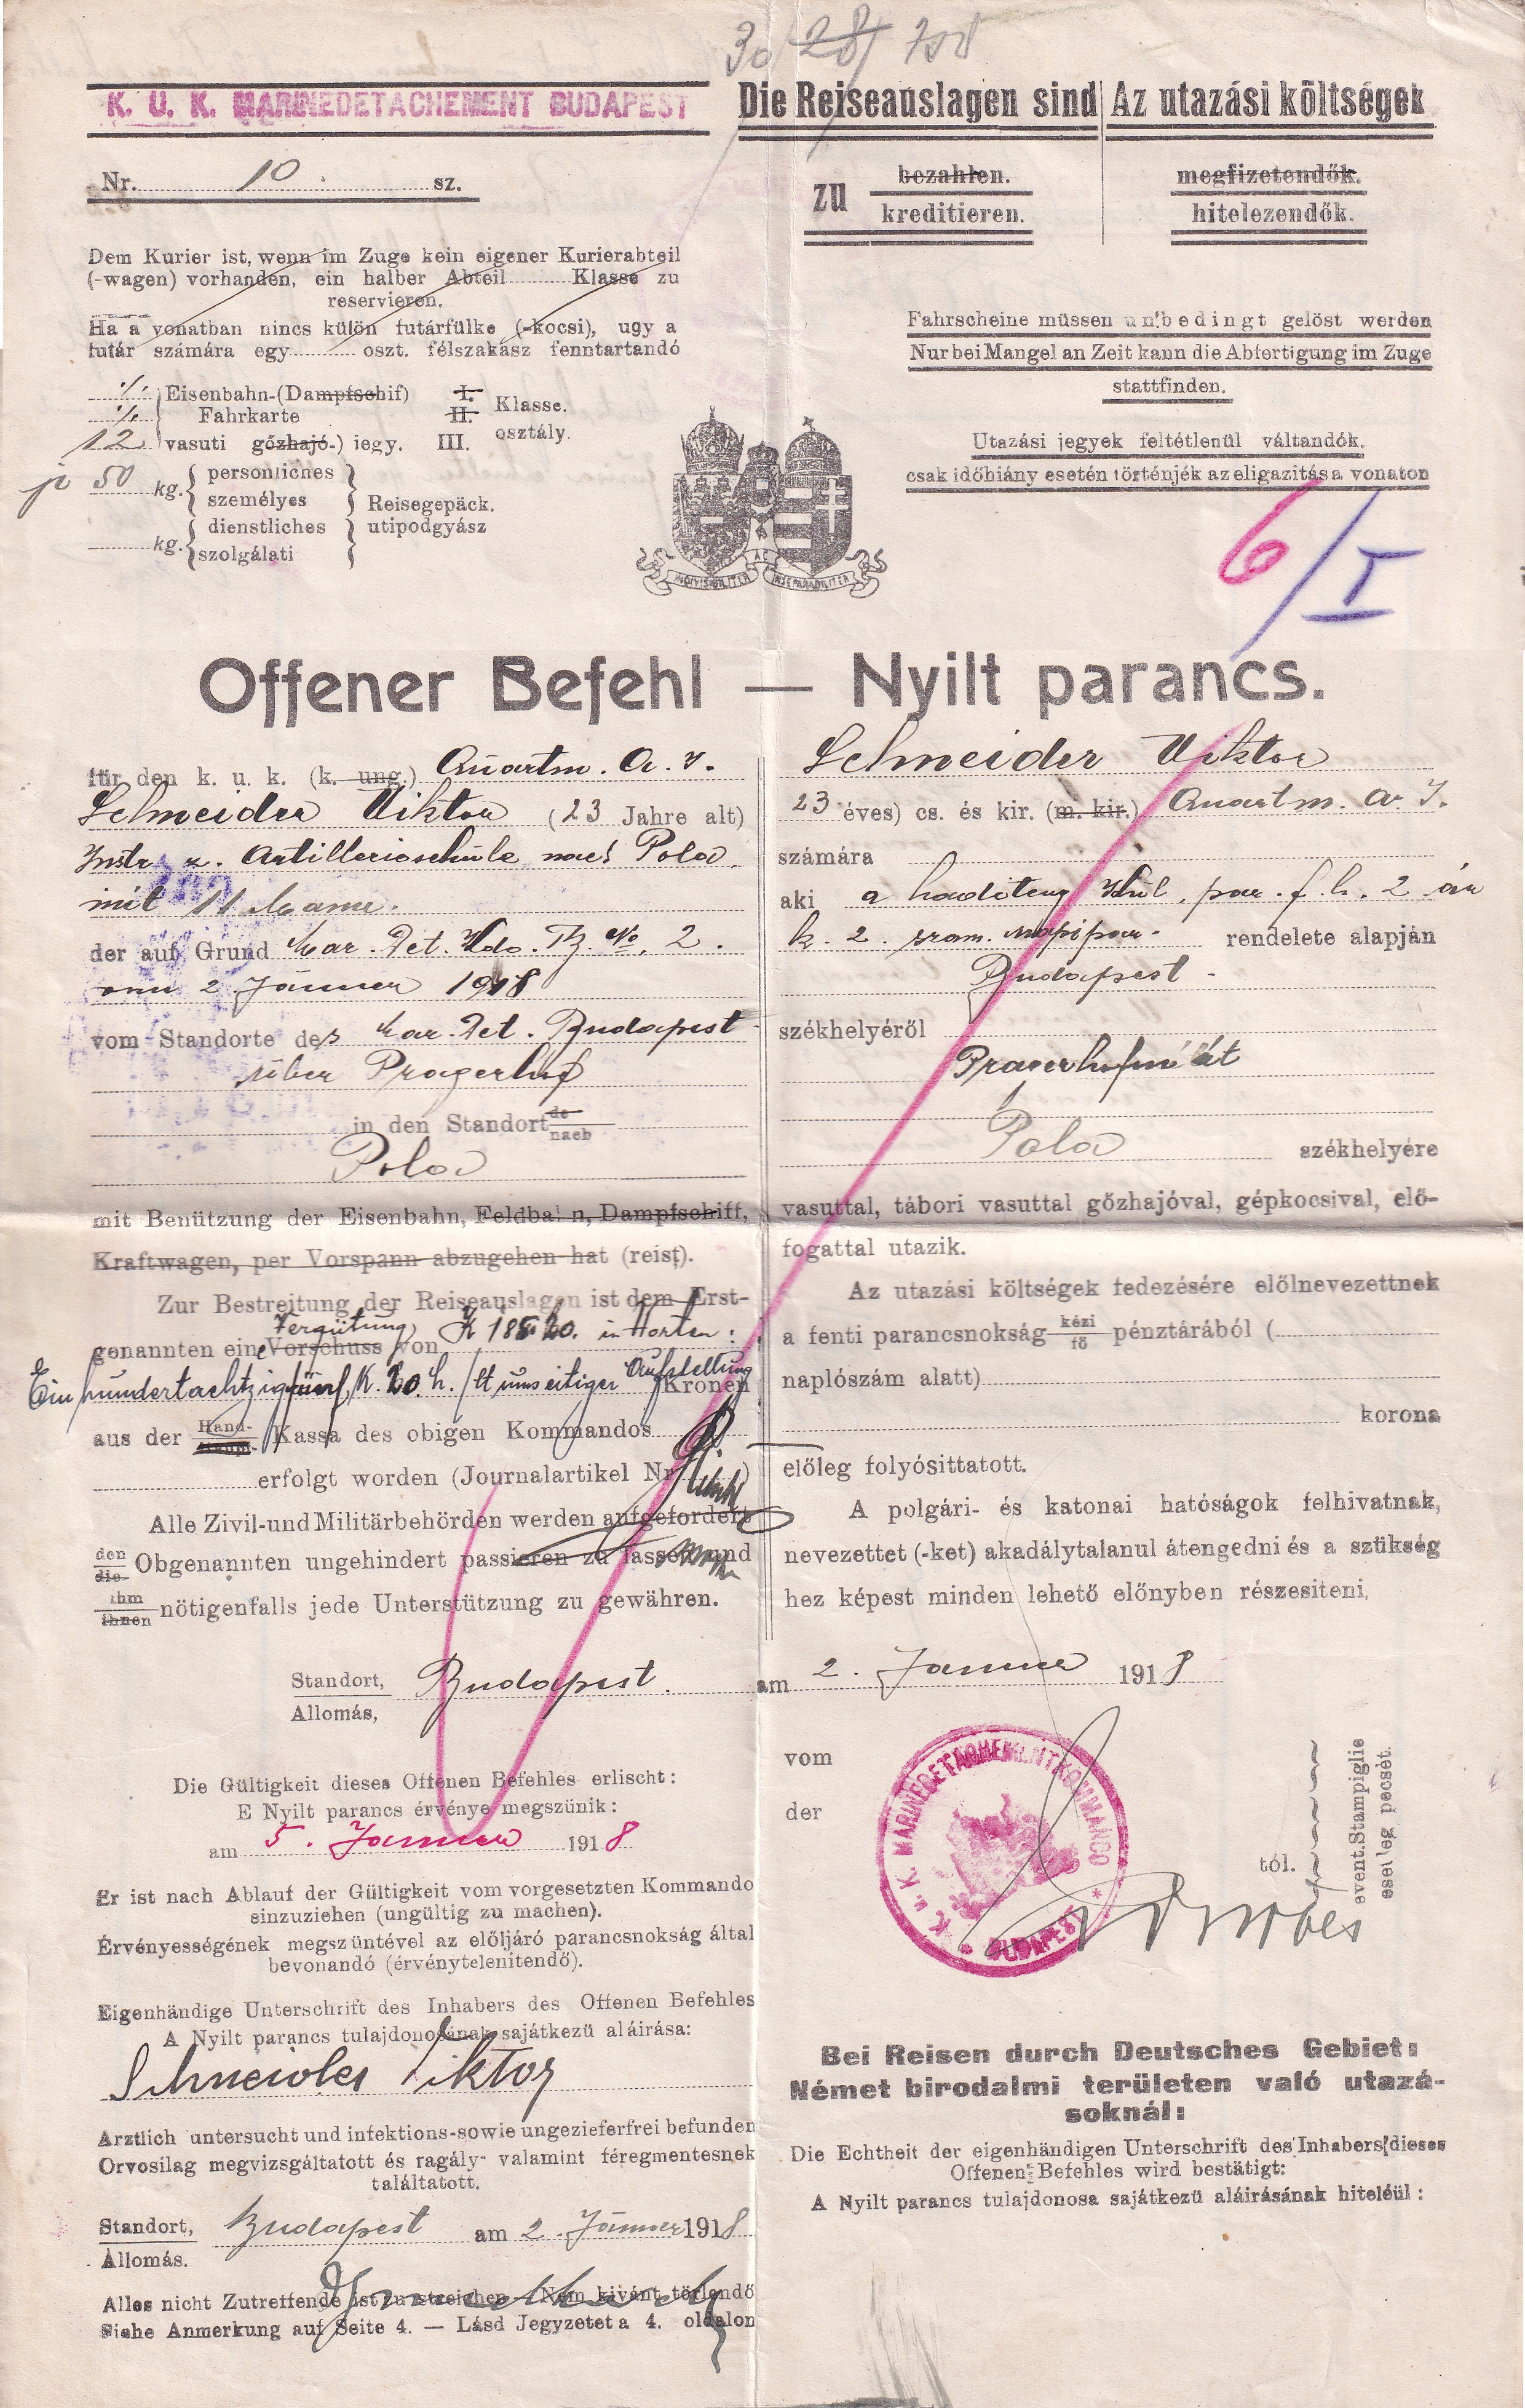 30 28 708
K. U. K. MARINEDETACHEMENT BUDAPEST
Die Reiseauslagen sind
Az utazási költségek
Nr. 10. sz.
zu bezahlen.
kreditieren.
megfizetendők.
hitelezendők.
Dem Kurier ist, wenn im Zuge kein eigener Kurierabteil
(-wagen) vorhanden, ein halber Abteil Klasse zu
reservieren.
Ha a vonatban nincs külön futárfülke (-kocsi), ugy a
futár számára egy oszt. félszakász fenntartandó
Fahrscheine müssen unbedingt gelöst werden
Nur bei Mangel an Zeit kann die Abfertigung im Zuge
stattfinden.
Utazási jegyek feltétlenül váltandók.
csak időhiány esetén történjék az eligazitás a vonaton
./. Eisenbahn-(Dampfschif) I.
./. Fahrkarte II. Klasse.
12 vasuti gőzhajó-) jegy. III. osztály.
50 kg. persönliches
személyes Reisegepäck.
kg. dienstliches utipodgyász
szolgálati
INDIVISIBILITER AC INSEPARABILITER
6/I
Offener Befehl — Nyilt parancs.
für den k. u. k. (k. ung.) Quartm. A. I.
Schneider Viktor (23 Jahre alt)
Instr. z. Artillerieschule nach Pola
mit 11 Mann.
der auf Grund Mar. Det. Kdo. Tg. No. 2.
vom 2 Jänner 1918
vom Standorte des Mar. Det. Budapest
über Pragerhof
in den Standort de
nach
Pola
mit Benützung der Eisenbahn, Feldbahn, Dampfschiff,
Kraftwagen, per Vorspann abzugehen hat (reist).
Zur Bestreitung der Reiseauslagen ist dem Erst-
genannten eine Vorschuss Vergütung von K 185.20. in Worten:
Einhundertachtzigfünf K. 20 h. / lt umseitiger Aufstellung Kronen
aus der Hand- Kassa des obigen Kommandos
erfolgt worden (Journalartikel Nr. )
Alle Zivil- und Militärbehörden werden aufgefordert
den
die Obgenannten ungehindert passieren zu lassen und
ihm
ihnen nötigenfalls jede Unterstützung zu gewähren.
Schneider Viktor
23 éves) cs. és kir. (m. kir.) Quartm. A. I.
számára
aki a haditeng. Kül. par. f. h. 2 án
k. 2. szám. napipar. rendelete alapján
Budapest
székhelyéről
Pragerhofon át
Pola székhelyére
vasuttal, tábori vasuttal gőzhajóval, gépkocsival, elő-
fogattal utazik.
Az utazási költségek fedezésére előlnevezettnek
a fenti parancsnokság kézi
fő pénztárából (
naplószám alatt)
korona
előleg folyósittatott.
A polgári- és katonai hatóságok felhivatnak,
nevezettet (-ket) akadálytalanul átengedni és a szükség
hez képest minden lehető előnyben részesiteni.
Standort, Budapest. am 2. Jänner 1918
Allomás,
Die Gültigkeit dieses Offenen Befehles erlischt:
E Nyilt parancs érvénye megszünik:
am 5. Jänner 1918
Er ist nach Ablauf der Gültigkeit vom vorgesetzten Kommando
einzuziehen (ungültig zu machen).
Érvényességének megszüntével az előljáró parancsnokság által
bevonandó (érvénytelenitendő).
Eigenhändige Unterschrift des Inhabers des Offenen Befehles
A Nyilt parancs tulajdonosának sajátkezü aláirása:
Schneider Viktor
Arztlich untersucht und infektions-sowie ungezieferfrei befunden
Orvosilag megvizsgáltatott és ragály- valamint féregmentesnek
találtatott.
Standort, Budapest am 2. Jänner 1918
Állomás.
Alles nicht Zutreffende ist zu streichen — Nem kivánt törlendő
Siehe Anmerkung auf Seite 4. — Lásd Jegyzetet a 4. oldalon
vom
der
K. u. K. MARINEDETACHEMENTKOMMANDO * BUDAPEST *
tól.
event. Stampiglie
esetleg pecsét.
Bei Reisen durch Deutsches Gebiet:
Német birodalmi területen való utazá-
soknál:
Die Echtheit der eigenhändigen Unterschrift des Inhabers dieses
Offenen Befehles wird bestätigt:
A Nyilt parancs tulajdonosa sajátkezü aláirásának hiteléül: